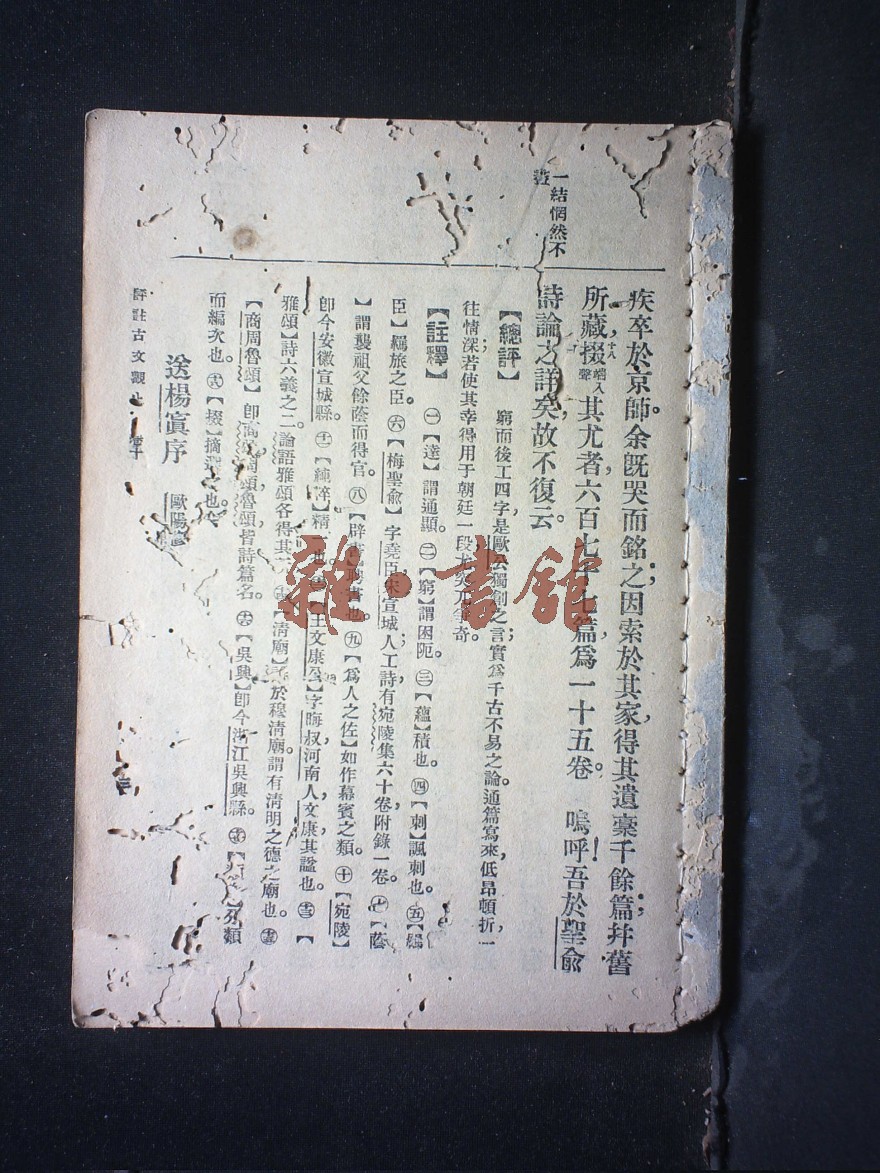 一結惘然不
盡
疾卒於京師。余既哭而銘之；因索於其家，得其遺稾千餘篇；并舊
所藏，掇其尤者六百七十七篇，爲一十五卷。嗚呼！吾於聖俞
詩論之詳矣，故不復云。
【總評】窮而後工四字，是歐公獨創之言，實爲千古不易之論；通篇寫來，低昂頓折，一
往情深；若使其幸得用于朝廷一段，尤突兀爭奇。
【註釋】㊀【達】謂通顯。㊁【窮】謂困阨。㊂【蘊】積也。㊃【刺】諷刺也。㊄【羈
臣】羈旅之臣。㊅【梅聖俞】字堯臣，宋宣城人，工詩，有宛陵集六十卷，附錄一卷。㊆【蔭
】謂襲祖父餘蔭而得官。㊇【辟書】聘書也。㊈【爲人之佐】如作幕賓之類。㊉【宛陵】
卽今安徽宣城縣。【純粹】精也。【王文康公】字晦叔，河南人，文康其諡也。【
雅頌】詩六義之二，論語雅頌各得其所。【清廟】於穆清廟。謂有清明之德之廟也。
【商周魯頌】卽商頌周頌魯頌，皆詩篇名。【吳興】卽今浙江吳興縣。【 類
而編次也。【掇】摘選之也。
送楊寘序 歐陽
評註古文觀止
雜·書館